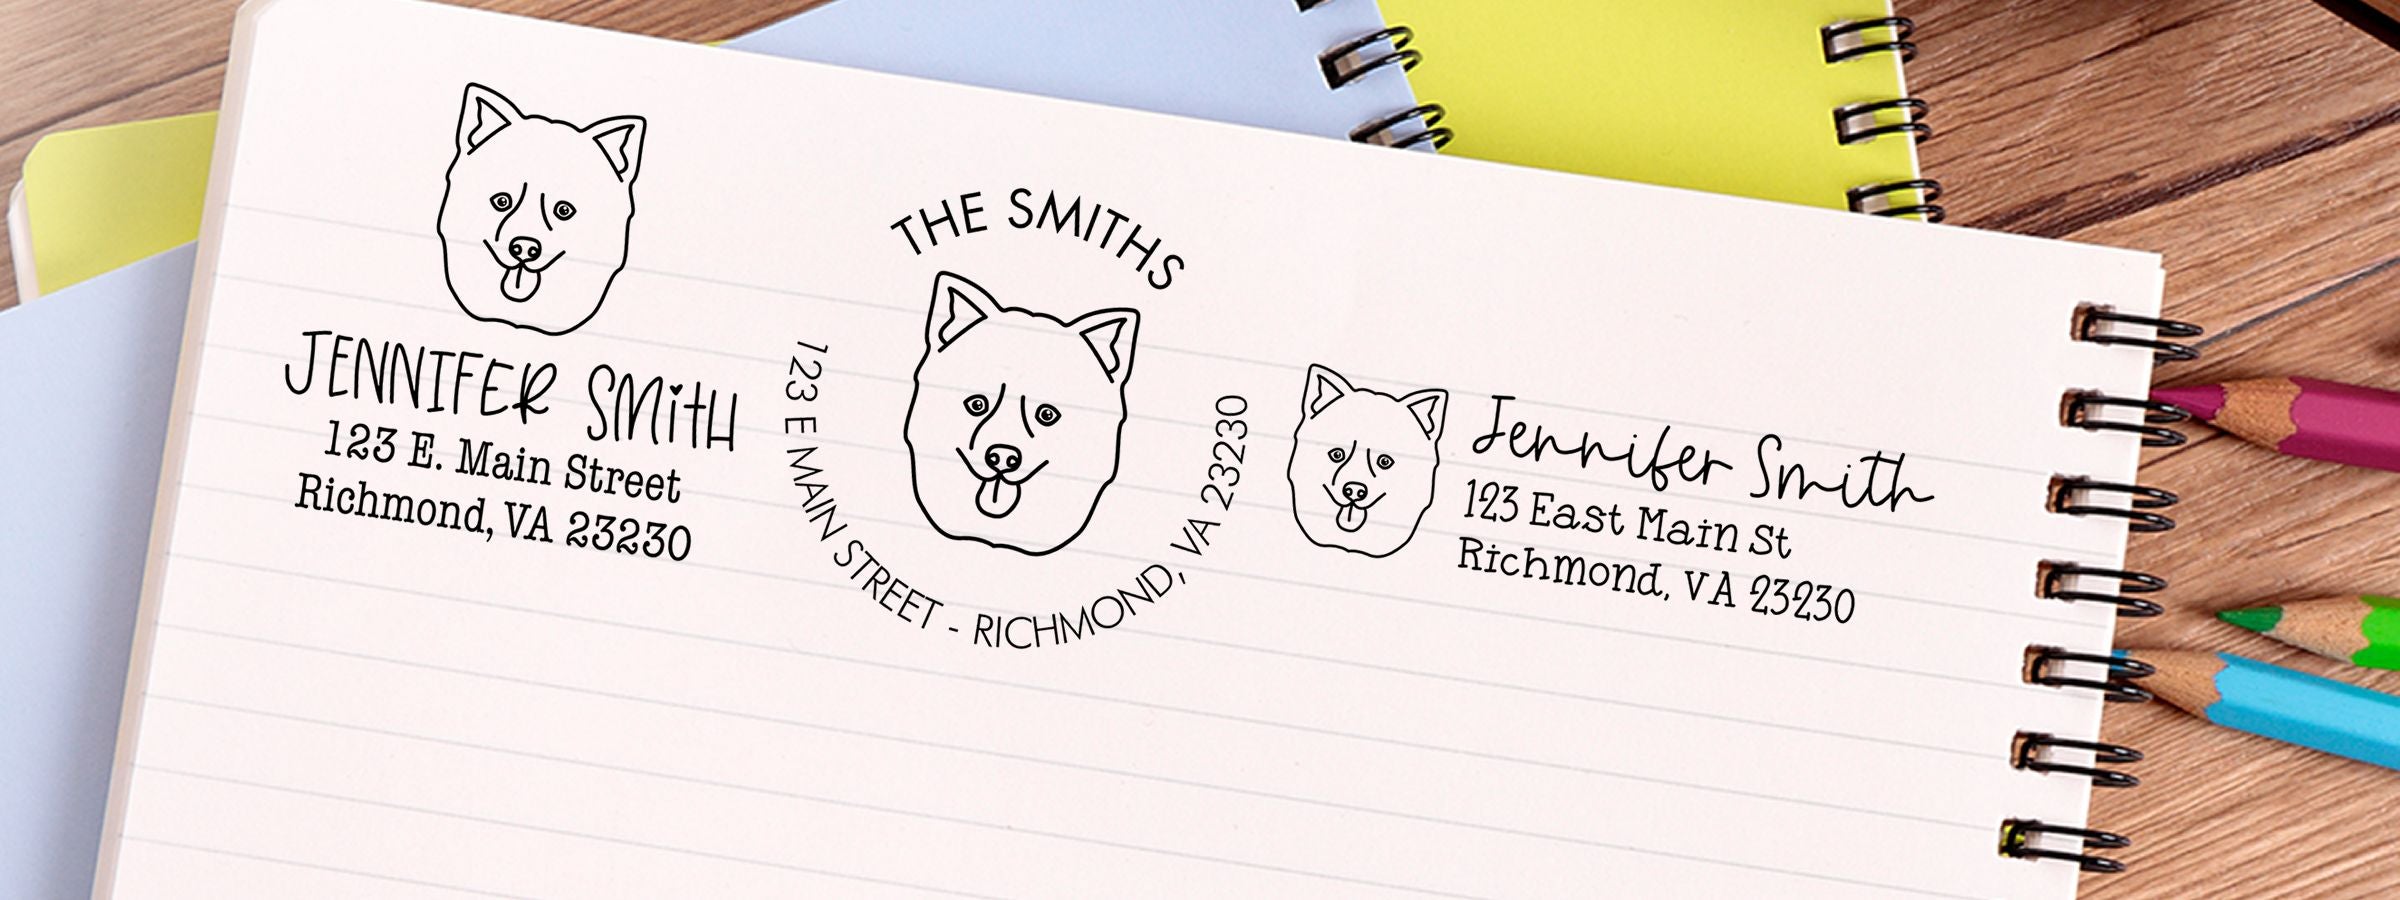 JENNIFER SMitH
123 E. Main Street
Richmond, VA 23230
THE SMITHS
123 E MAIN STREET - RICHMOND, VA 23230
Jennifer Smith
123 East Main St
Richmond, VA 23230